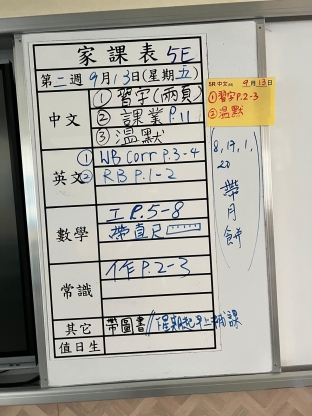 家課表 5E
第二週 9月13日(星期五)
中文
① 習字(兩頁)
② 課業 P.11
③ 溫默
英文
① WB Corr P.3-4
② RB P.1-2
數學
工 P.5-8
帶直尺
常識
作 P.2-3
其它
帶圖書 // 下星期起早上補課
值日生
5R 中文 9月13日
① 習字 P.2-3
② 溫默
8, 17, 1,
20
帶月餅